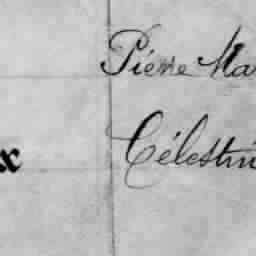 Piérre Ma
x Célestin